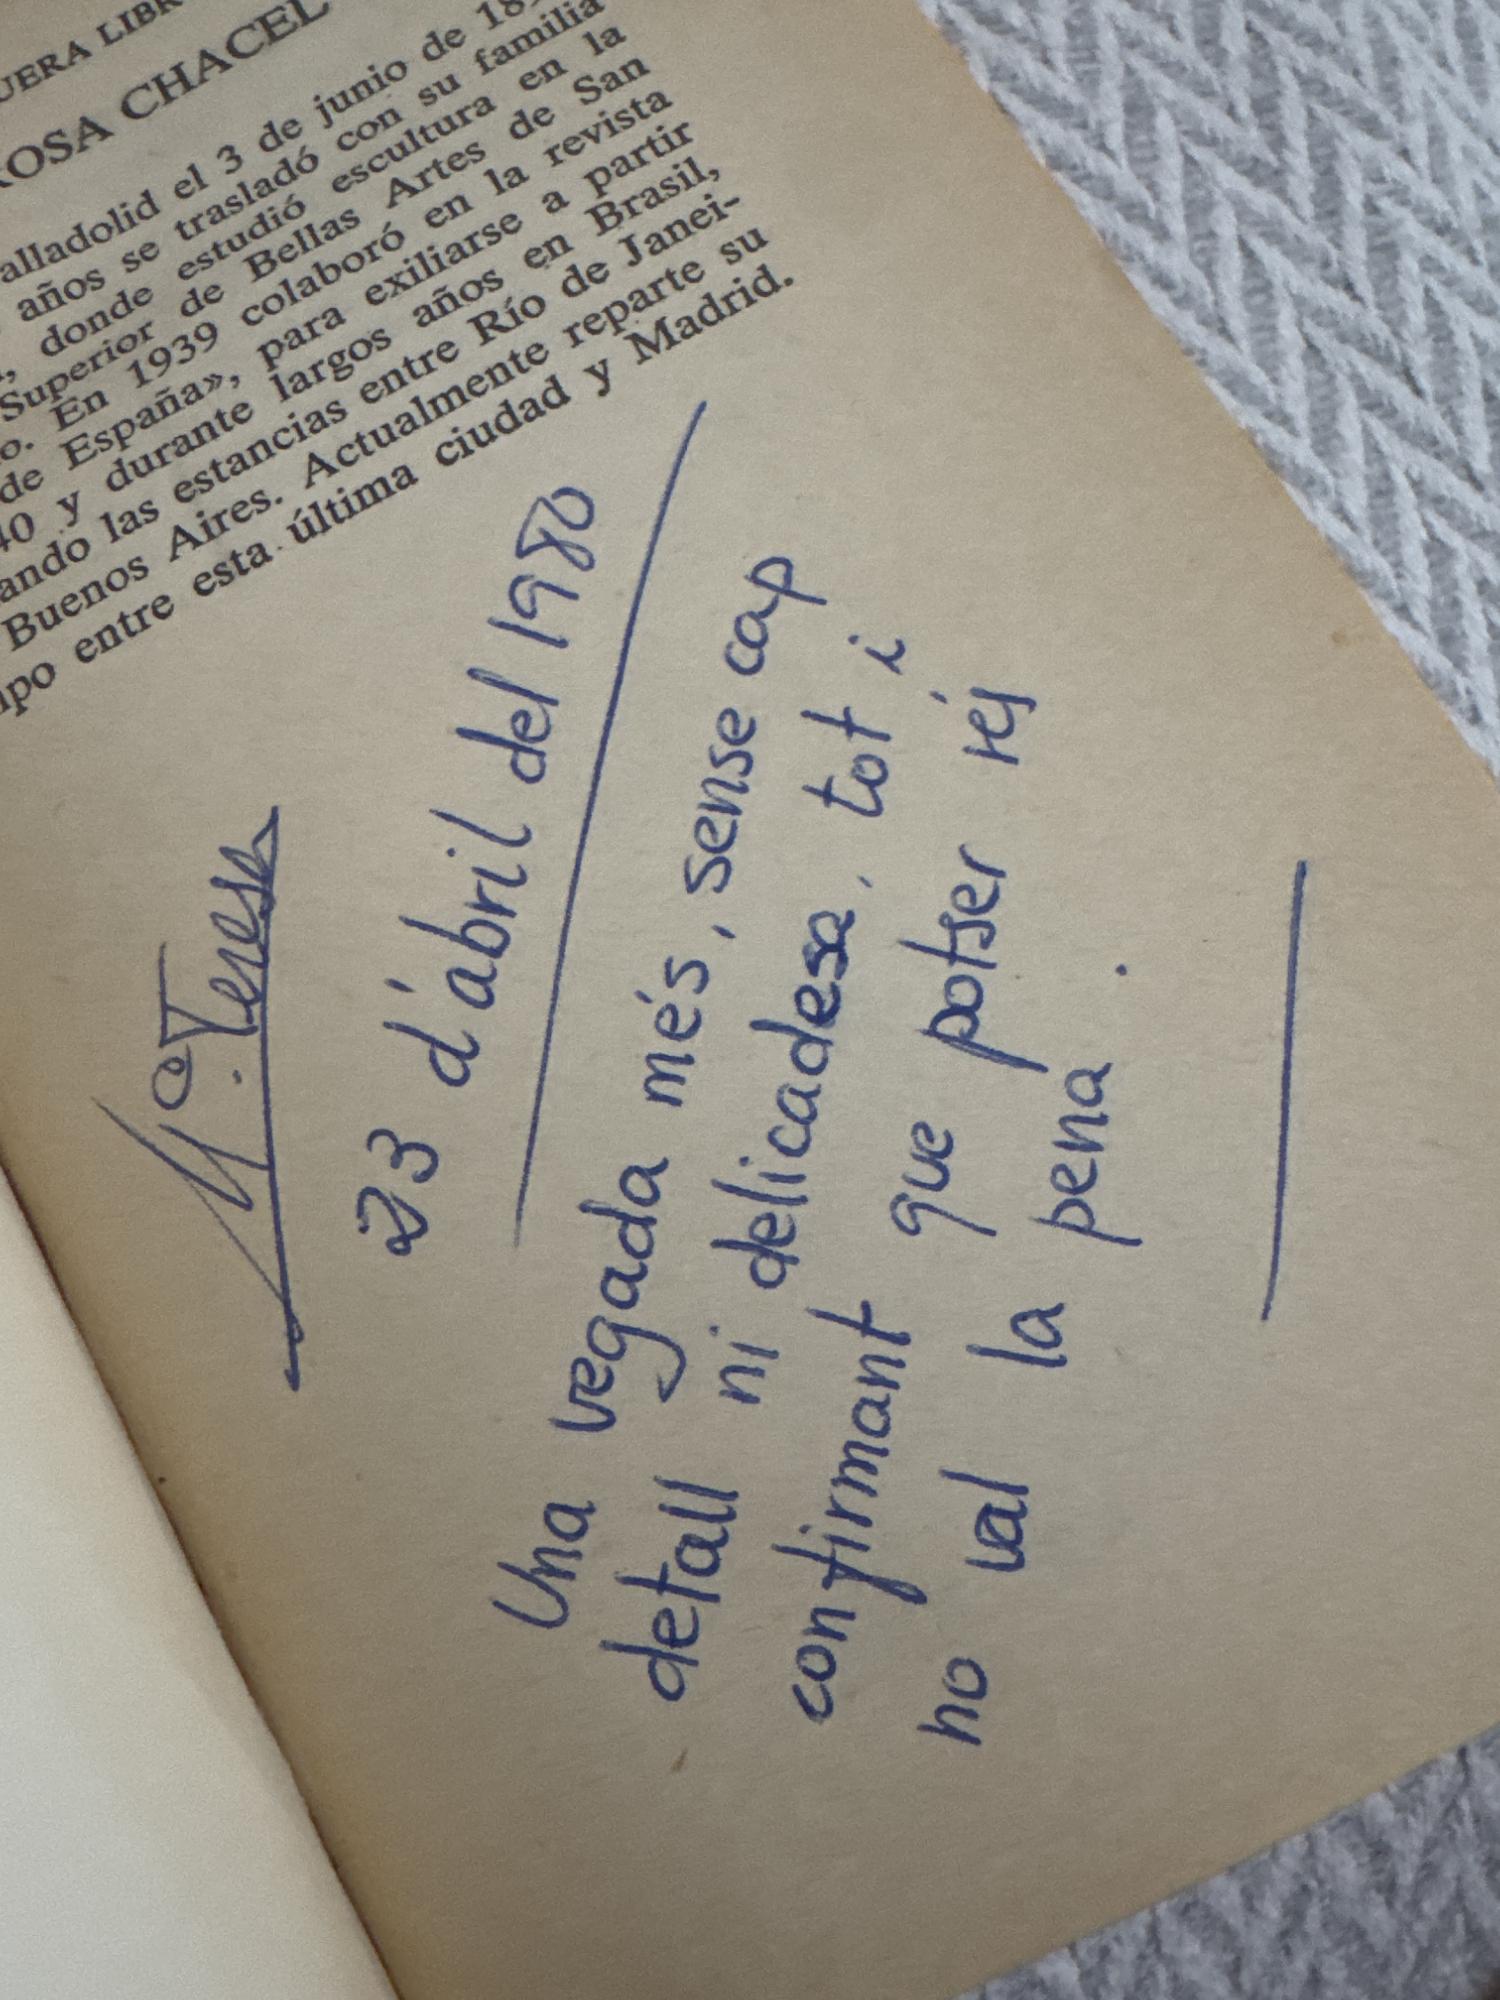 ROSA CHACEL
alladolid el 3 de junio de
años se trasladó con su familia
donde estudió escultura en la
Superior de Bellas Artes de San
o. En 1939 colaboró en la revista
de España», para exiliarse a partir
40 y durante largos años en Brasil,
ando las estancias entre Río de Janei-
Buenos Aires. Actualmente reparte su
mpo entre esta última ciudad y Madrid.
Mª. Teresa
23 d'abril del 1980
Una vegada més, sense cap
detall ni delicadesa, tot i
confirmant que potser rés
no val la pena.